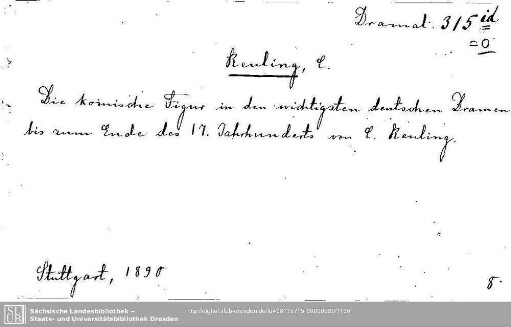 Dramat. 315 id
= 0
Reuling, C.
Die komische Figur in den wichtigsten deutschen Dramen
bis zum Ende des 17. Jahrhunderts von C. Reuling.
Stuttgart, 1890
8.
Sächsische Landesbibliothek –
Staats- und Universitätsbibliothek Dresden